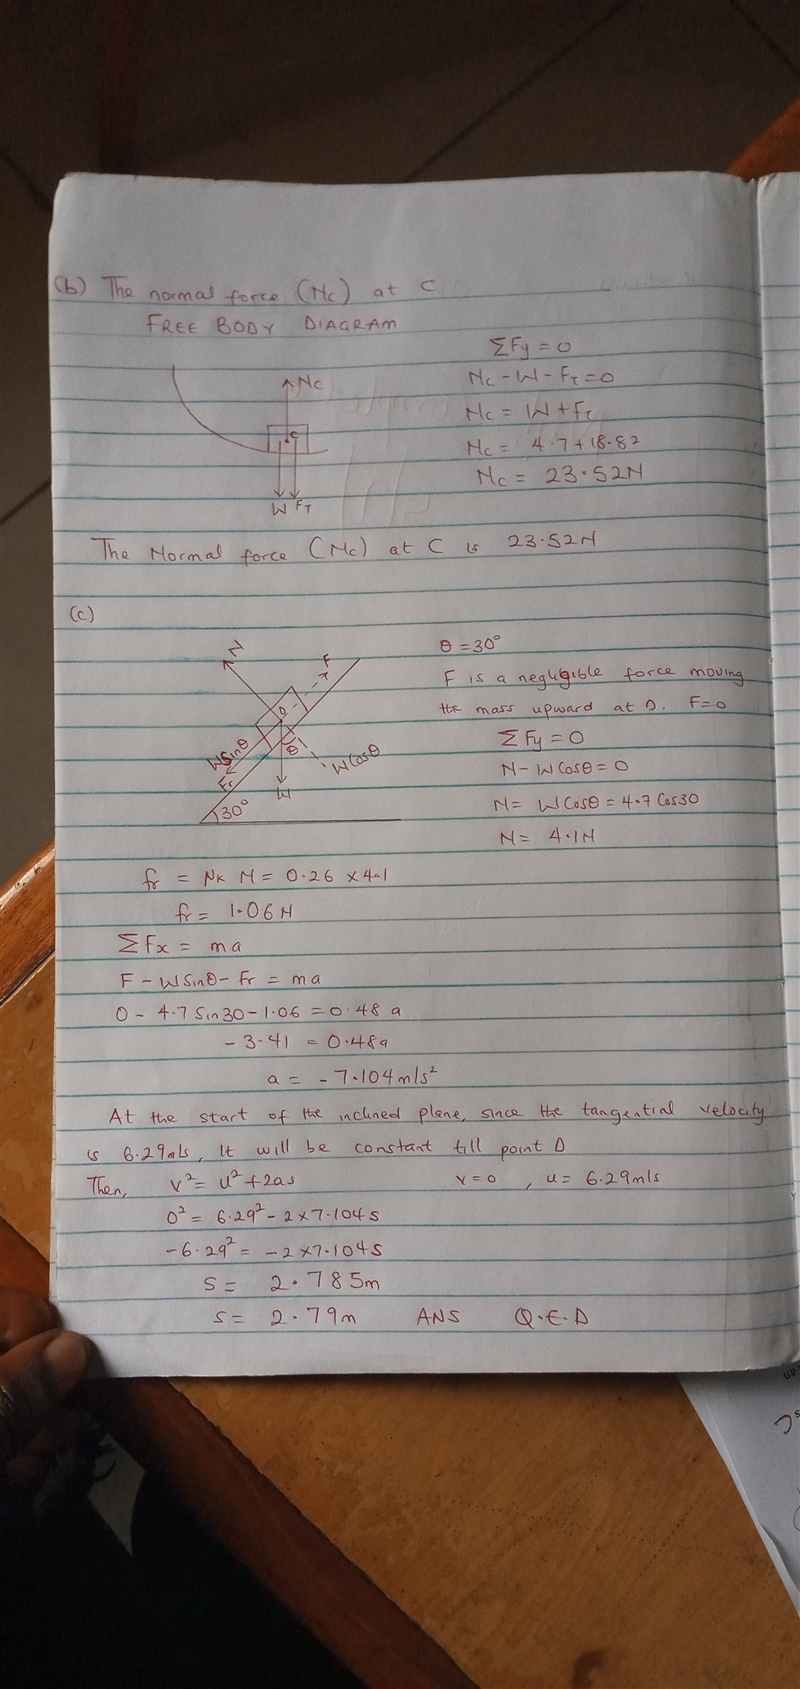 (b) The normal force (Nc) at C
FREE BODY DIAGRAM
ΣFy = 0
Nc - W - FT = 0
Nc = W + FT
Nc = 4.7 + 18.82
Nc = 23.52N
Nc
C
W FT
The Normal force (Nc) at C is 23.52N
(c)
θ = 30°
F is a negligible force moving
the mass upward at D. F=0
ΣFy = 0
N - WCosθ = 0
N = WCosθ = 4.7 Cos30
N = 4.1N
N
F
D
WSinθ
Fr
θ
WCosθ
W
30°
fr = Nk N = 0.26 x 4.1
fr = 1.06N
ΣFx = ma
F - WSinθ - Fr = ma
0 - 4.7 Sin30 - 1.06 = 0.48 a
- 3.41 = 0.48a
a = - 7.104 m/s²
At the start of the inclined plane, since the tangential velocity
is 6.29m/s, It will be constant till point D
Then, v² = u² + 2as v = 0 , u = 6.29m/s
0² = 6.29² - 2 x 7.104 s
-6.29² = -2 x 7.104 s
s = 2.785m
s = 2.79m ANS Q.E.D